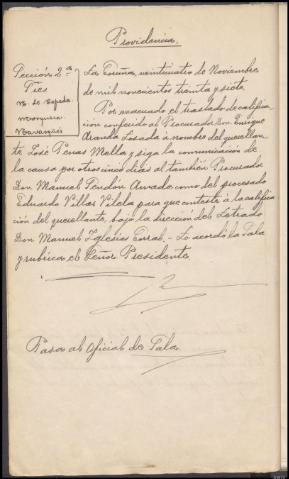 Providencia.
Sección 2ª
Sres
La Coruña, veinticuatro de Noviembre
de mil novecientos treinta y siete
Por evacuado el traslado de califica
ción conferido al Procurador Don Enrique
Aranda Losada a nombre del querellan
te José Penas Mella y siga la comunicación de
la causa por otros cinco días al también Procurador
Don Manuel Pendón Awado como del procesado
Eduardo Villar Vilela para que conteste a la califica
ción del querellante, bajo la dirección del Letrado
Don Manuel Iglesias Corral. - Lo acordó la Sala
y rubrica el Señor Presidente.
Pasa al Oficial de Sala